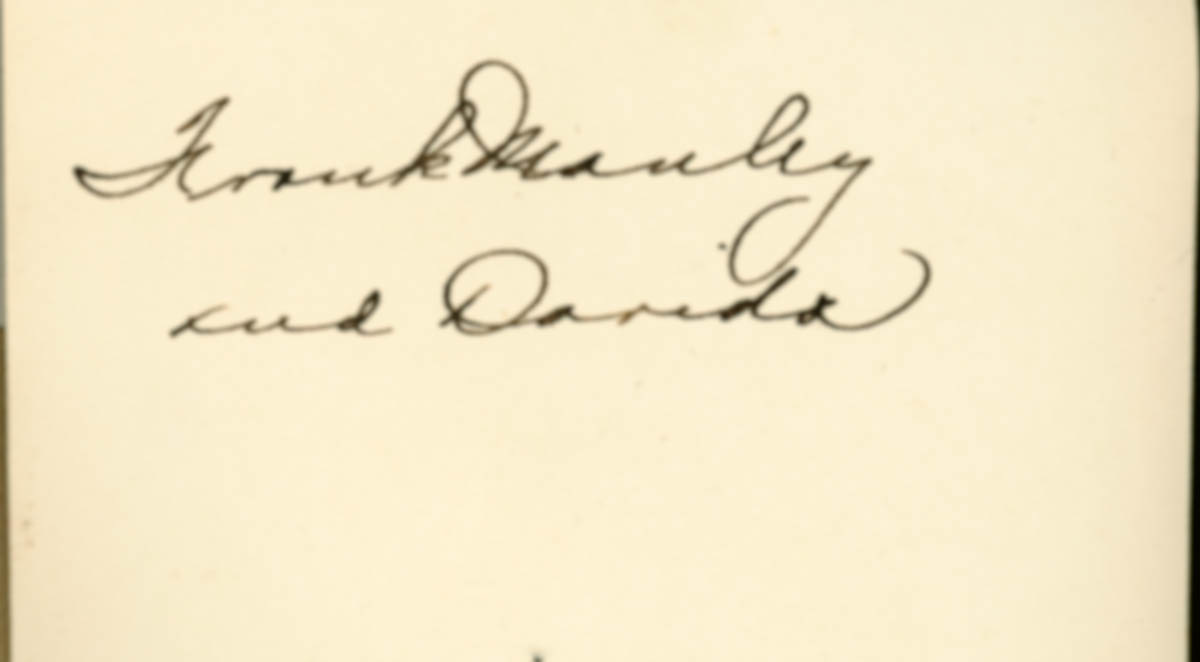 Frank Manley
and Davida